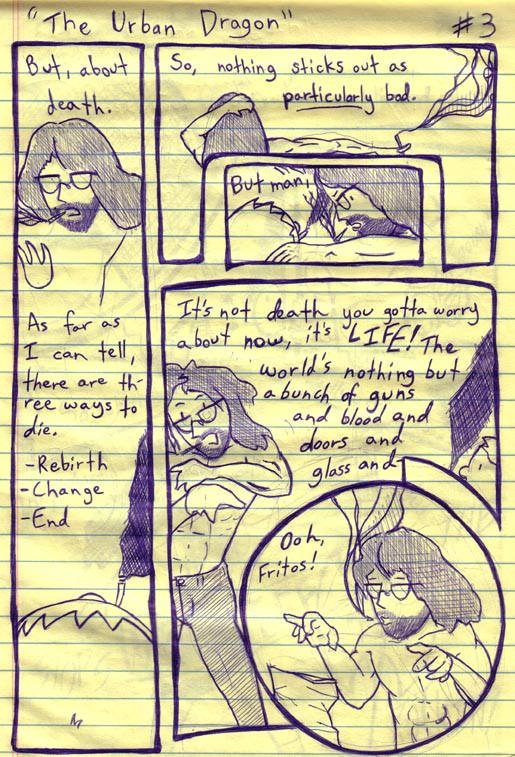 "The Urban Dragon"
#3
But, about
death.
As far as
I can tell,
there are th-
ree ways to
die.
-Rebirth
-Change
-End
So, nothing sticks out as
particularly bad.
But man,
It's not death you gotta worry
about now, it's LIFE! The
world's nothing but
a bunch of guns
and blood and
doors and
glass and-
Ooh,
Fritos!